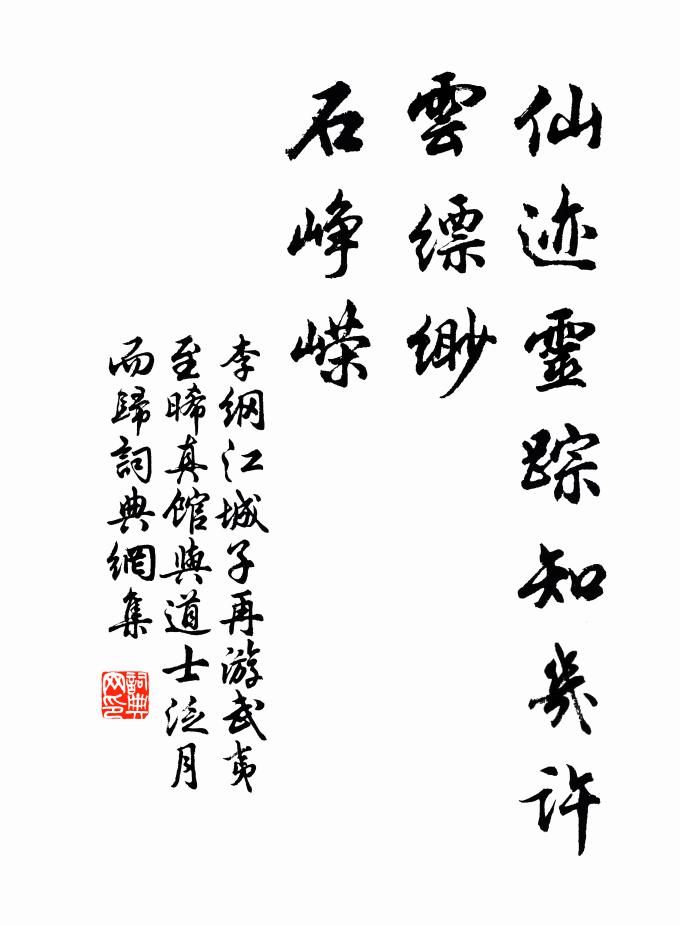 仙迹靈踪知幾許
雲縹緲
石峥嶸
李綱江城子再游武夷
至晞真館與道士泛月
而歸詞典網集
詞典网印